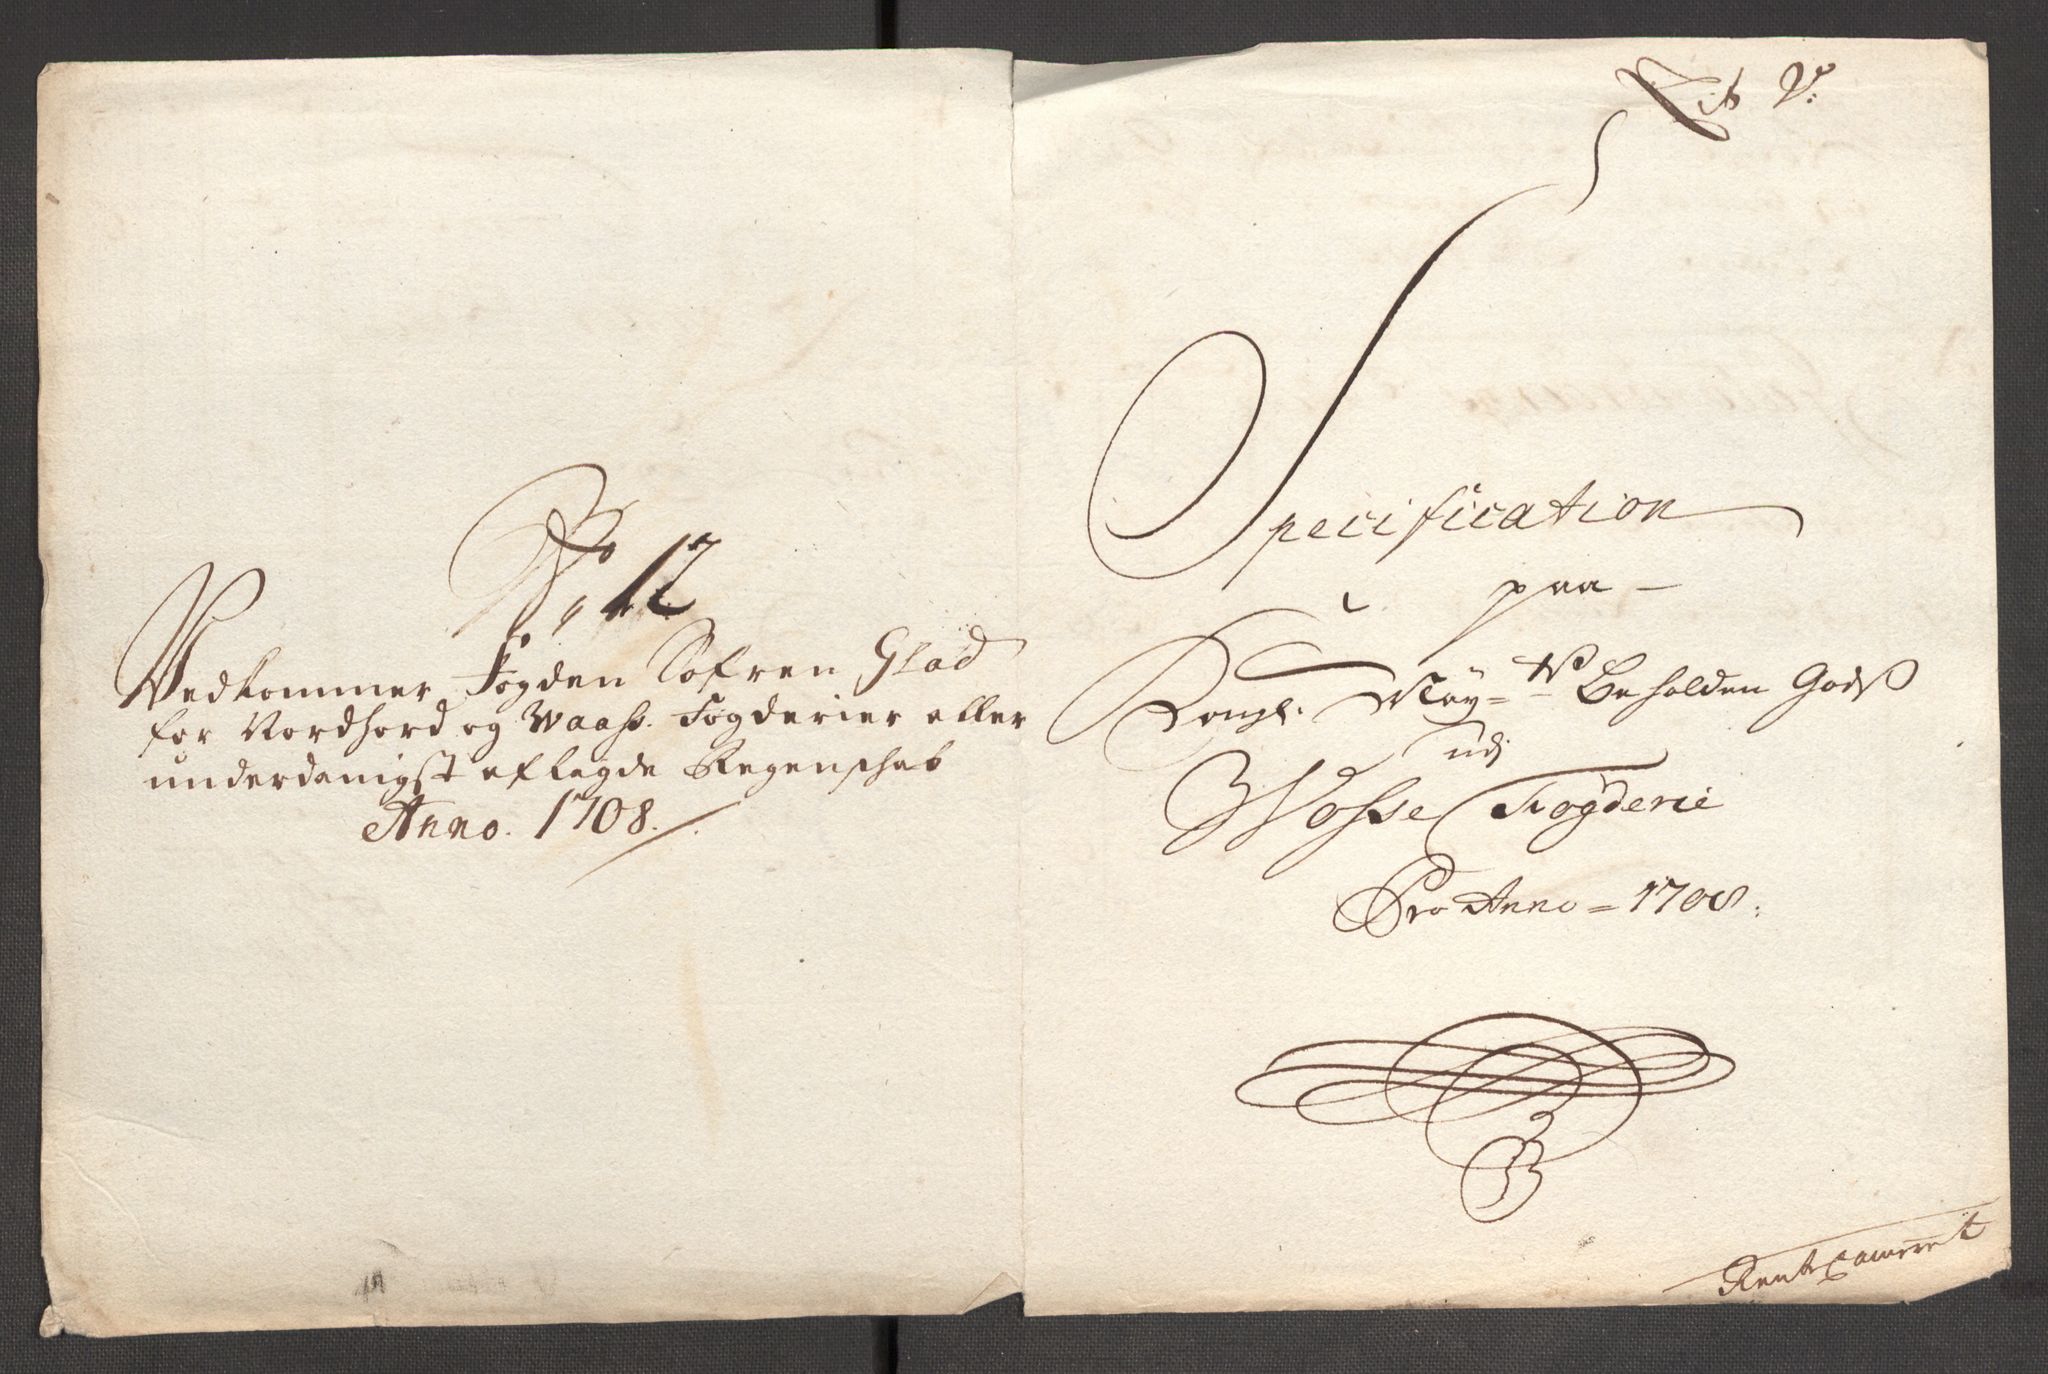 No. 12
Vedkommer Fogden Sofren Glad
for Nordhord og Waass. Fogderier eller
underdanigst aflagde Regenschab
Anno. 1708.
Lit V:
Specification
paa
Kongl: May=ts Beholden Godß
udj
Wosse Fogderie
Pro Anno = 1708:
Rente Cammeret